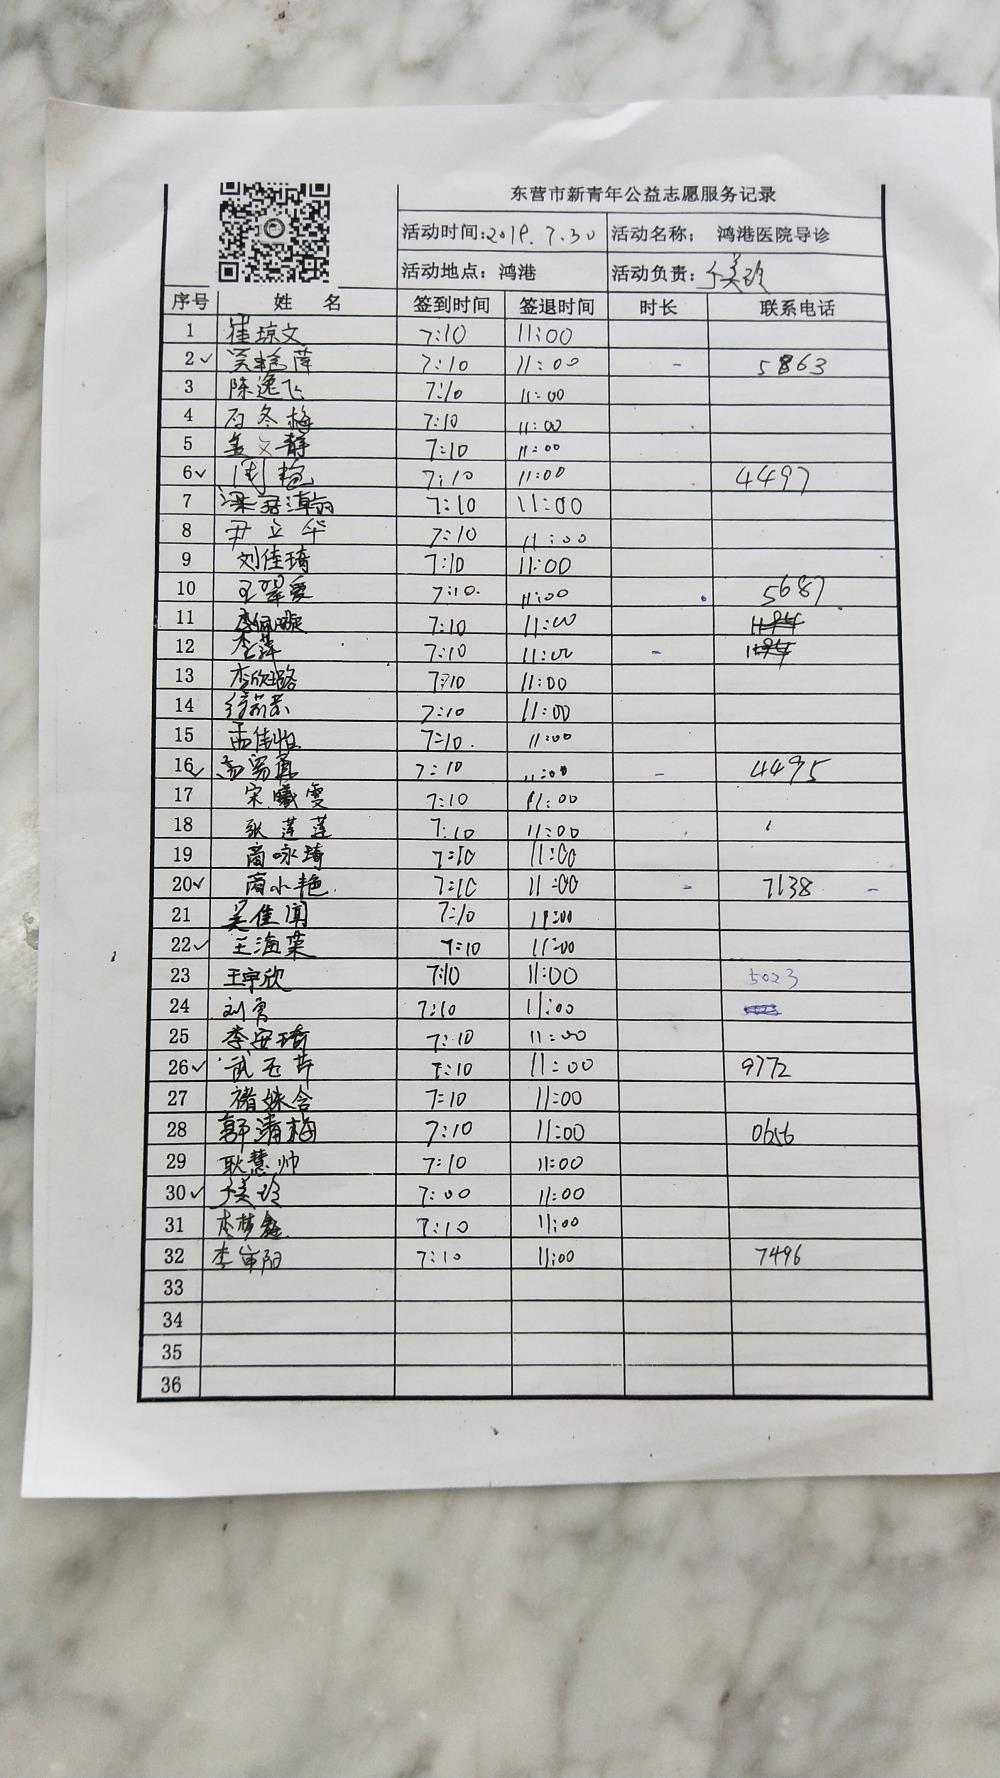 东营市新青年公益志愿服务记录
活动时间:2019.7.30 活动名称: 鸿港医院导诊
活动地点: 鸿港 活动负责: 于美玲
序号 姓 名 签到时间 签退时间 时长 联系电话
1 崔琼文 7:10 11:00
2 ✓ 吴艳萍 7:10 11:00 - 5863
3 陈逸飞 7:10 11:00
4 石冬梅 7:10 11:00
5 孟文静 7:10 11:00
6 ✓ 周艳 7:10 11:00 4497
7 梁 7:10 11:00
8 尹立华 7:10 11:00
9 刘佳琦 7:10 11:00
10 王翠爱 7:10. 11:00 5687
11 李佩璇 7:10 11:00
12 李萍 7:10 11:00 -
13 李欣璐 7:10 11:00
14 徐 7:10 11:00
15 孟佳怡 7:10. 11:00
16 ✓ 7:10 11:00 - 4495
17 宋曦雯 7:10 11:00
18 张莲莲 7:10 11:00
19 商咏琦 7:10 11:00
20 ✓ 商小艳. 7:10 11:00 - 7138 -
21 吴佳闻 7:10 11:00
22 ✓ 王海荣 7:10 11:00
23 王宇欣 7:10 11:00 5023
24 刘勇 7:10 11:00
25 李安琦 7:10 11:00
26 ✓ 武玉芹 7:10 11:00 9772
27 褚姝含 7:10 11:00
28 郭清梅 7:10 11:00 0656
29 耿慧帅 7:10 11:00
30 ✓ 于美玲 7:00 11:00
31 李梦鑫 7:10 11:00
32 李 阳 7:10 11:00 7496
33
34
35
36